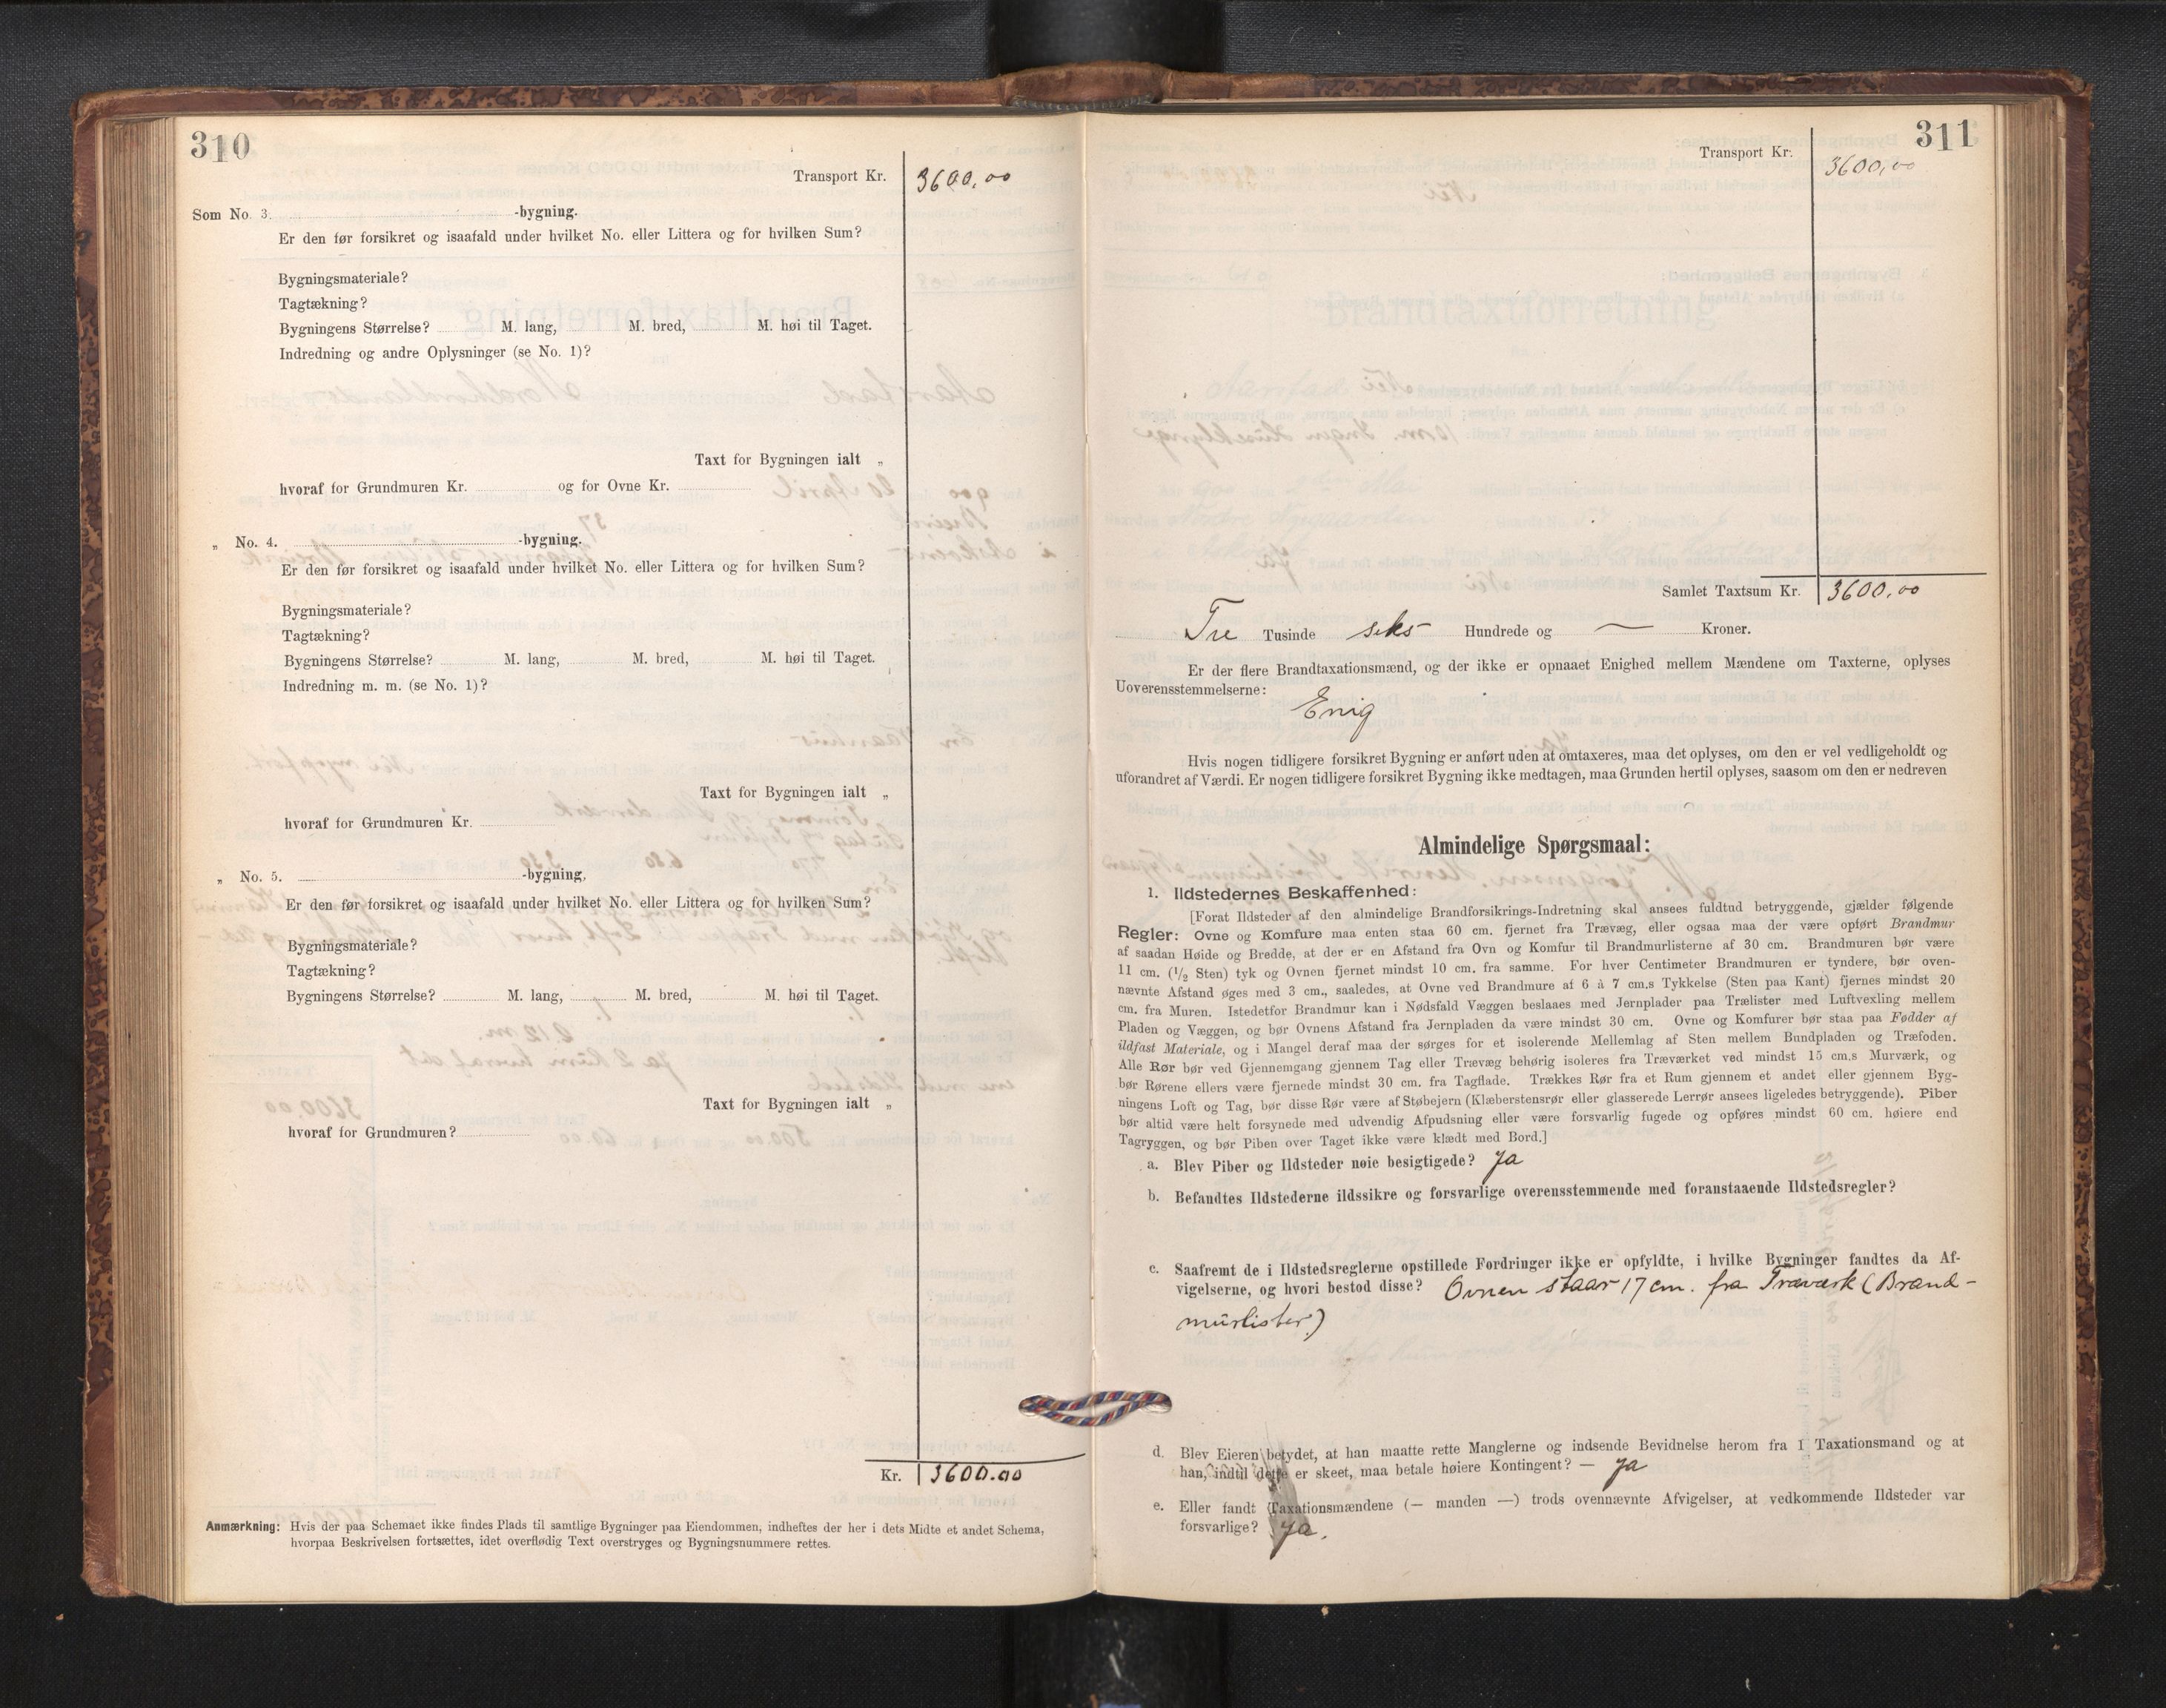 310
Transport Kr. 3600,00
Som No. 3. -bygning.
Er den før forsikret og isaafald under hvilket No. eller Littera og for hvilken Sum?
Bygningsmateriale?
Tagtækning?
Bygningens Størrelse? M. lang, M. bred, M. høi til Taget.
Indredning og andre Oplysninger (se No. 1)?
Taxt for Bygningen ialt „
hvoraf for Grundmuren Kr. og for Ovne Kr.
„ No. 4. -bygning.
Er den før forsikret og isaafald under hvilket No. eller Littera og for hvilken Sum?
Bygningsmateriale?
Tagtækning?
Bygningens Størrelse? M. lang, M. bred, M. høi til Taget.
Indredning m. m. (se No. 1)?
Taxt for Bygningen ialt „
hvoraf for Grundmuren Kr.
„ No. 5. -bygning,
Er den før forsikret og isaafald under hvilket No. eller Littera og for hvilken Sum?
Bygningsmateriale?
Tagtækning?
Bygningens Størrelse? M. lang, M. bred, M. høi til Taget.
Taxt for Bygningen ialt „
hvoraf for Grundmuren?
Kr. 3600.00
Anmærkning: Hvis der paa Schemaet ikke findes Plads til samtlige Bygninger paa Eiendommen, indheftes der her i dets Midte et andet Schema,
hvorpaa Beskrivelsen fortsættes, idet overflødig Text overstryges og Bygningsnummere rettes.
311
Transport Kr. 3600,00
Samlet Taxtsum Kr. 3600,00
Tre Tusinde seks Hundrede og — Kroner.
Er der flere Brandtaxationsmænd, og der ikke er opnaaet Enighed mellem Mændene om Taxterne, oplyses
Uoverensstemmelserne:
Enig
Hvis nogen tidligere forsikret Bygning er anført uden at omtaxeres, maa det oplyses, om den er vel vedligeholdt og
uforandret af Værdi. Er nogen tidligere forsikret Bygning ikke medtagen, maa Grunden hertil oplyses, saasom om den er nedreven
Almindelige Spørgsmaal:
1. Ildstedernes Beskaffenhed:
[Forat Ildsteder af den almindelige Brandforsikrings-Indretning skal ansees fuldtud betryggende, gjælder følgende
Regler: Ovne og Komfure maa enten staa 60 cm. fjernet fra Trævæg, eller ogsaa maa der være opført Brandmur
af saadan Høide og Bredde, at der er en Afstand fra Ovn og Komfur til Brandmurlisterne af 30 cm. Brandmuren bør være
11 cm. (1/2 Sten) tyk og Ovnen fjernet mindst 10 cm. fra samme. For hver Centimeter Brandmuren er tyndere, bør oven-
nævnte Afstand øges med 3 cm., saaledes, at Ovne ved Brandmure af 6 à 7 cm.s Tykkelse (Sten paa Kant) fjernes mindst 20
cm. fra Muren. Istedetfor Brandmur kan i Nødsfald Væggen beslaaes med Jernplader paa Trælister med Luftvexling mellem
Pladen og Væggen, og bør Ovnens Afstand fra Jernpladen da være mindst 30 cm. Ovne og Komfurer bør staa paa Fødder af
ildfast Materiale, og i Mangel deraf maa der sørges for et isolerende Mellemlag af Sten mellem Bundpladen og Træfoden.
Alle Rør bør ved Gjennemgang gjennem Tag eller Trævæg behørig isoleres fra Træværket ved mindst 15 cm.s Murværk, og
bør Rørene ellers være fjernede mindst 30 cm. fra Tagflade. Trækkes Rør fra et Rum gjennem et andet eller gjennem Byg-
ningens Loft og Tag, bør disse Rør være af Støbejern (Klæberstensrør eller glasserede Lerrør ansees ligeledes betryggende). Piber
bør altid være helt forsynede med udvendig Afpudsning eller være forsvarlig fugede og opføres mindst 60 cm. høiere end
Tagryggen, og bør Piben over Taget ikke være klædt med Bord.]
a. Blev Piber og Ildsteder nøie besigtigede? Ja
b. Befandtes Ildstederne ildssikre og forsvarlige overensstemmende med foranstaaende Ildstedsregler?
c. Saafremt de i Ildstedsreglerne opstillede Fordringer ikke er opfyldte, i hvilke Bygninger fandtes da Af-
vigelserne, og hvori bestod disse? Ovnen staar 17 cm. fra Træværk (Brand-
murlister)
d. Blev Eieren betydet, at han maatte rette Manglerne og indsende Bevidnelse herom fra 1 Taxationsmand og at
han, indtil dette er skeet, maa betale høiere Kontingent? — Ja
e. Eller fandt Taxationsmændene (— manden —) trods ovennævnte Afvigelser, at vedkommende Ildsteder var
forsvarlige? Ja.